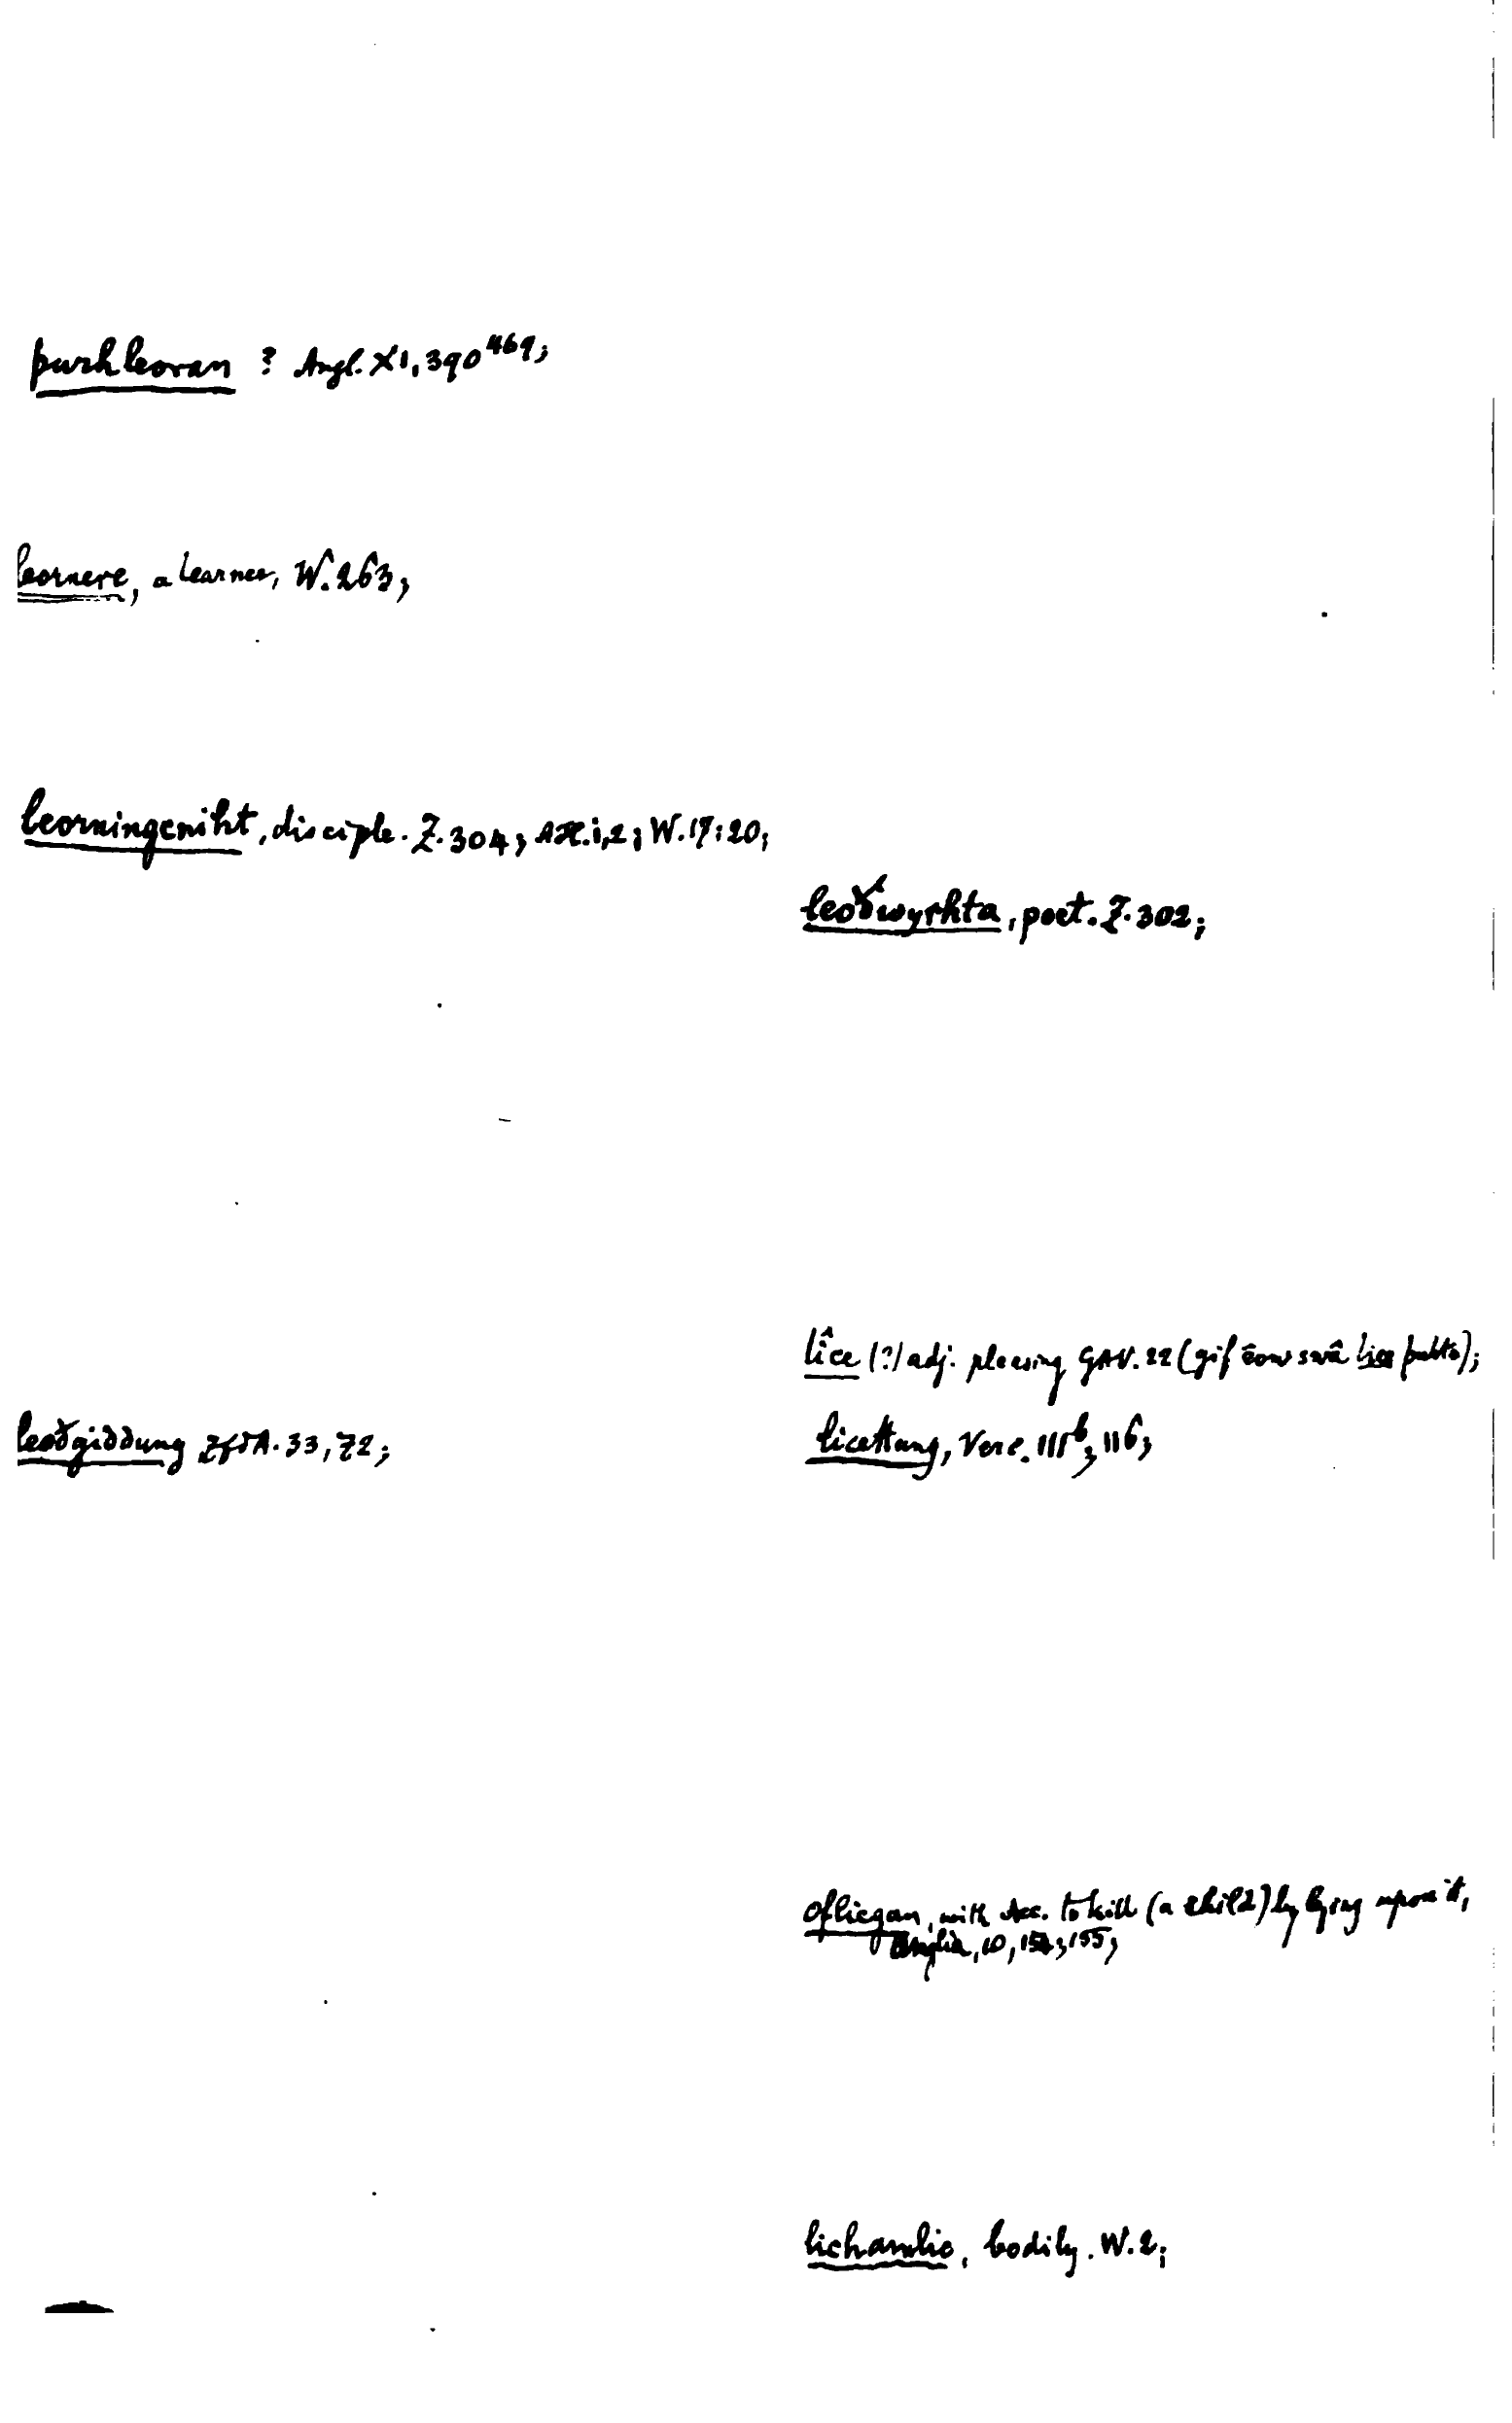 þurhleoran ? Angl. XI, 390⁴⁶⁹;
leornere, a learner, W. 263;
leorningcniht, disciple. Z. 304; ÆH. i, 2; W. 17:20;
leoðgiddung ZfdA. 33, 72;
leoðwyrhta, poet. Z. 302;
lîce (?) adj. pleasing GAV. 22 (gif êow swâ lice þuhte);
licettung, Verc. 111ᵇ, 116;
ofliegan, with Acc. to kill (a child) by lying upon it,
Anglia, 10, 154; 155;
lichamlic, bodily. W. 2;